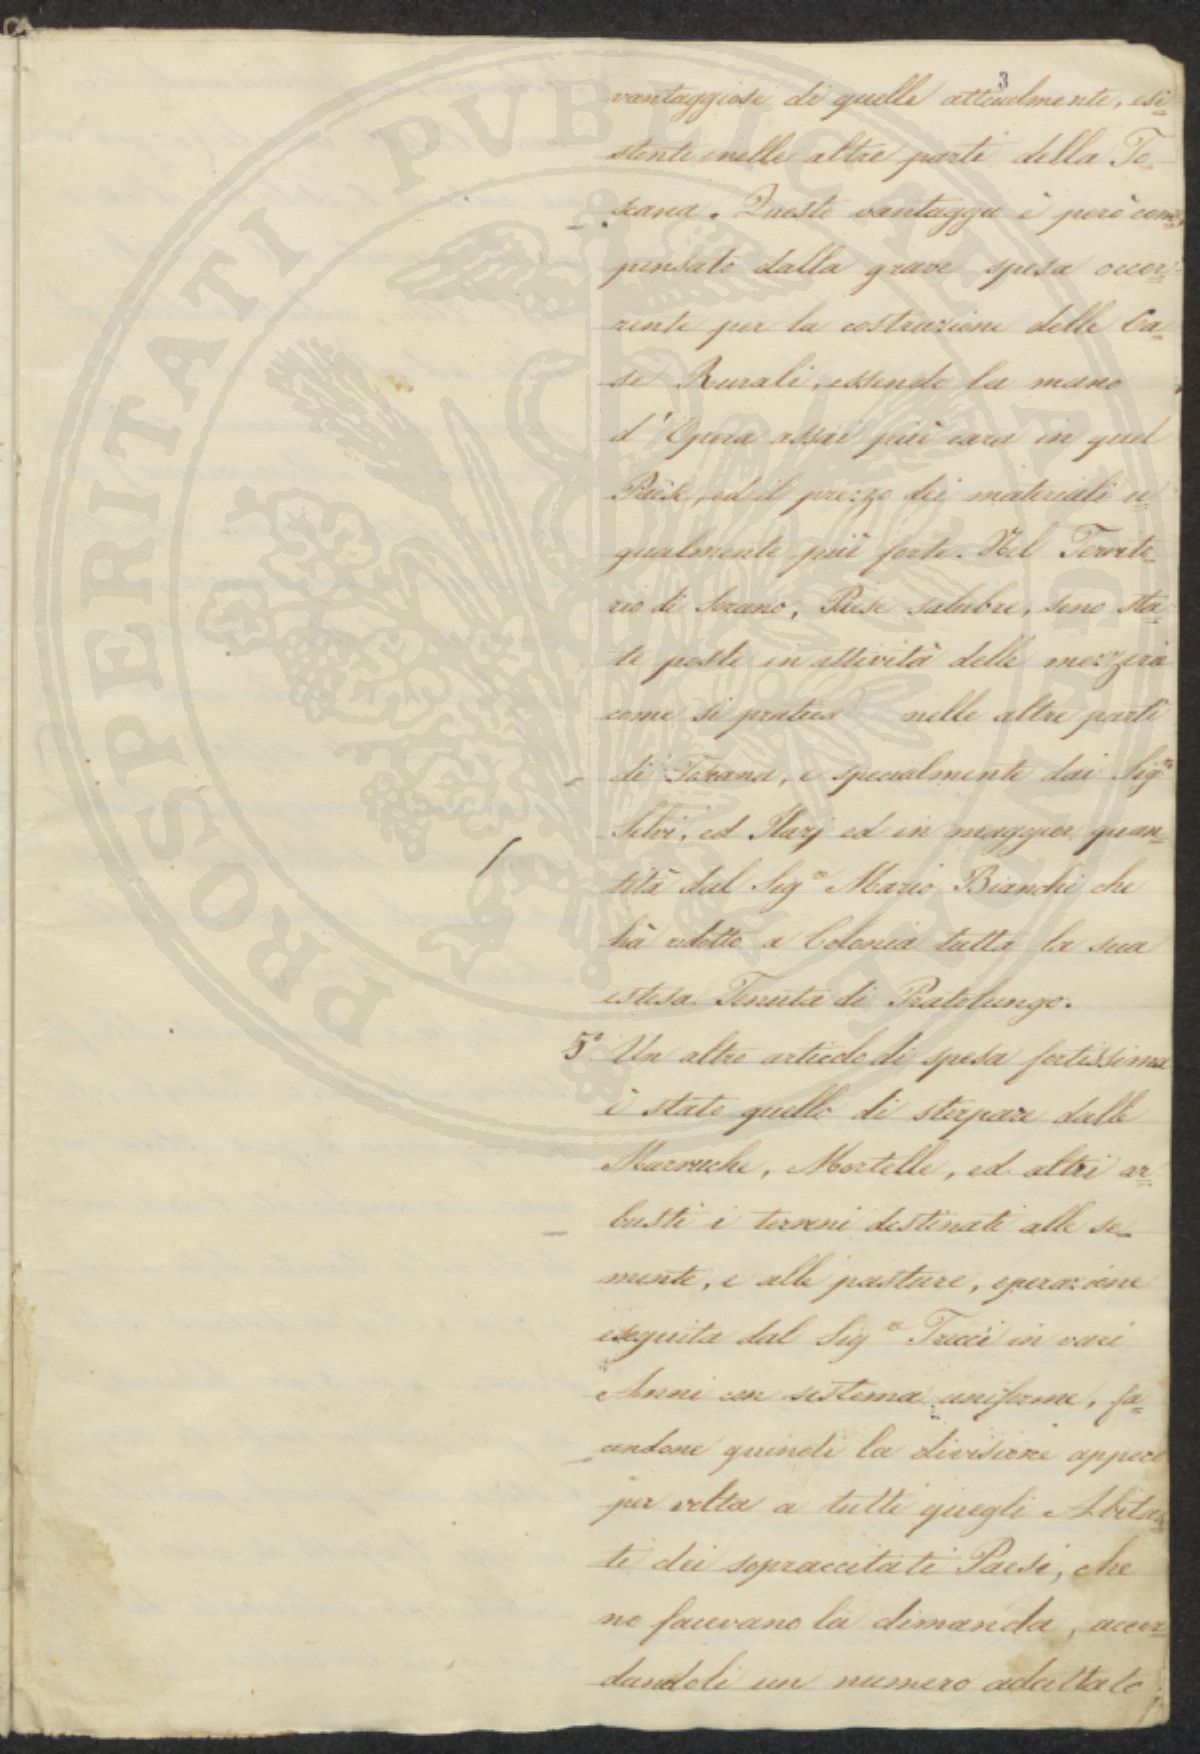 3
vantaggiose di quelle attualmente, esi=
stente nelle altre parti della To=
scana. Questo vantaggio è però com=
pensato dalla grave spesa occor=
rente per la costruzione delle Ca=
se Rurali, essendo la mano
d'Opera assai più cara in quel
Paese, ed il prezzo dei materiali u=
gualmente più forte. Nel Territo=
rio di Sorano, Paese salubre, sono sta=
te poste in attività delle mezzeria
come si pratica nelle altre parti
di Toscana, e specialmente dai Sig.ri
Selvi, ed Ilarj ed in maggior quan=
tità dal Sig.re Mario Bianchi che
hà ridotto a Colonia tutta la sua
estesa Tenuta di Pratolungo.
5° Un altro articolo di spesa fortissima
è stato quello di sterpare dalle
Marruche, Mortelle, ed altri ar=
busti i terreni destinati alle se=
mente, e alle pasture, operazione
eseguita dal Sig.re Tucci in vari
Anni con sistema uniforme, fa=
cendone quindi la divisione appeco
per volta a tutti quegli Abitan=
ti dei sopraccitati Paesi, che
ne facevano la dimanda, accor=
dandoli un numero adattato
PROSPERITATI PVBLICAE AVGENDAE